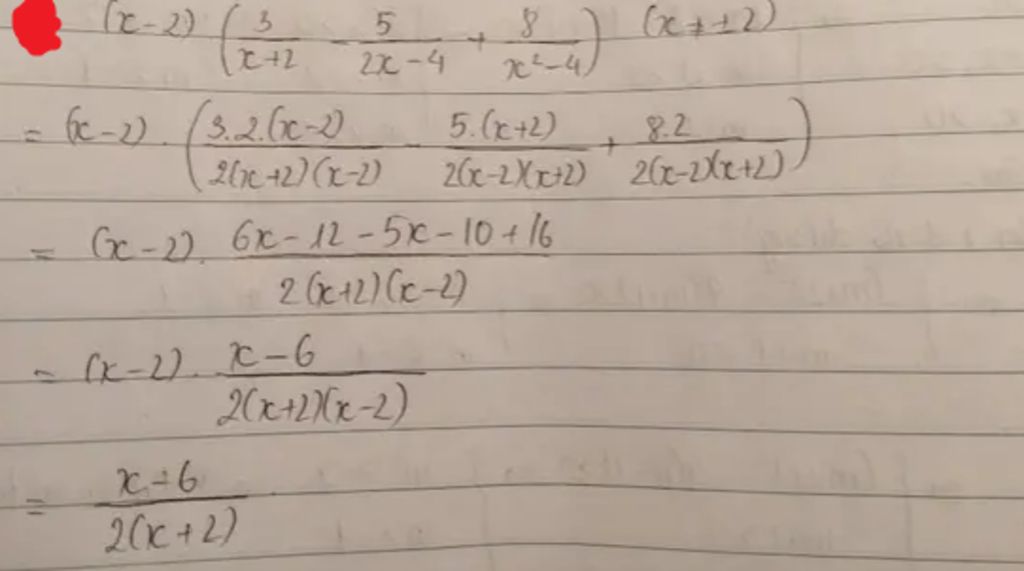 (x-2) (3/(x+2) - 5/(2x-4) + 8/(x²-4)) (x ≠ ±2)
= (x-2) . (3.2.(x-2)/(2(x+2)(x-2)) - 5.(x+2)/(2(x-2)(x+2)) + 8.2/(2(x-2)(x+2)))
= (x-2) . (6x-12-5x-10+16)/(2(x+2)(x-2))
= (x-2) . (x-6)/(2(x+2)(x-2))
= (x-6)/(2(x+2))